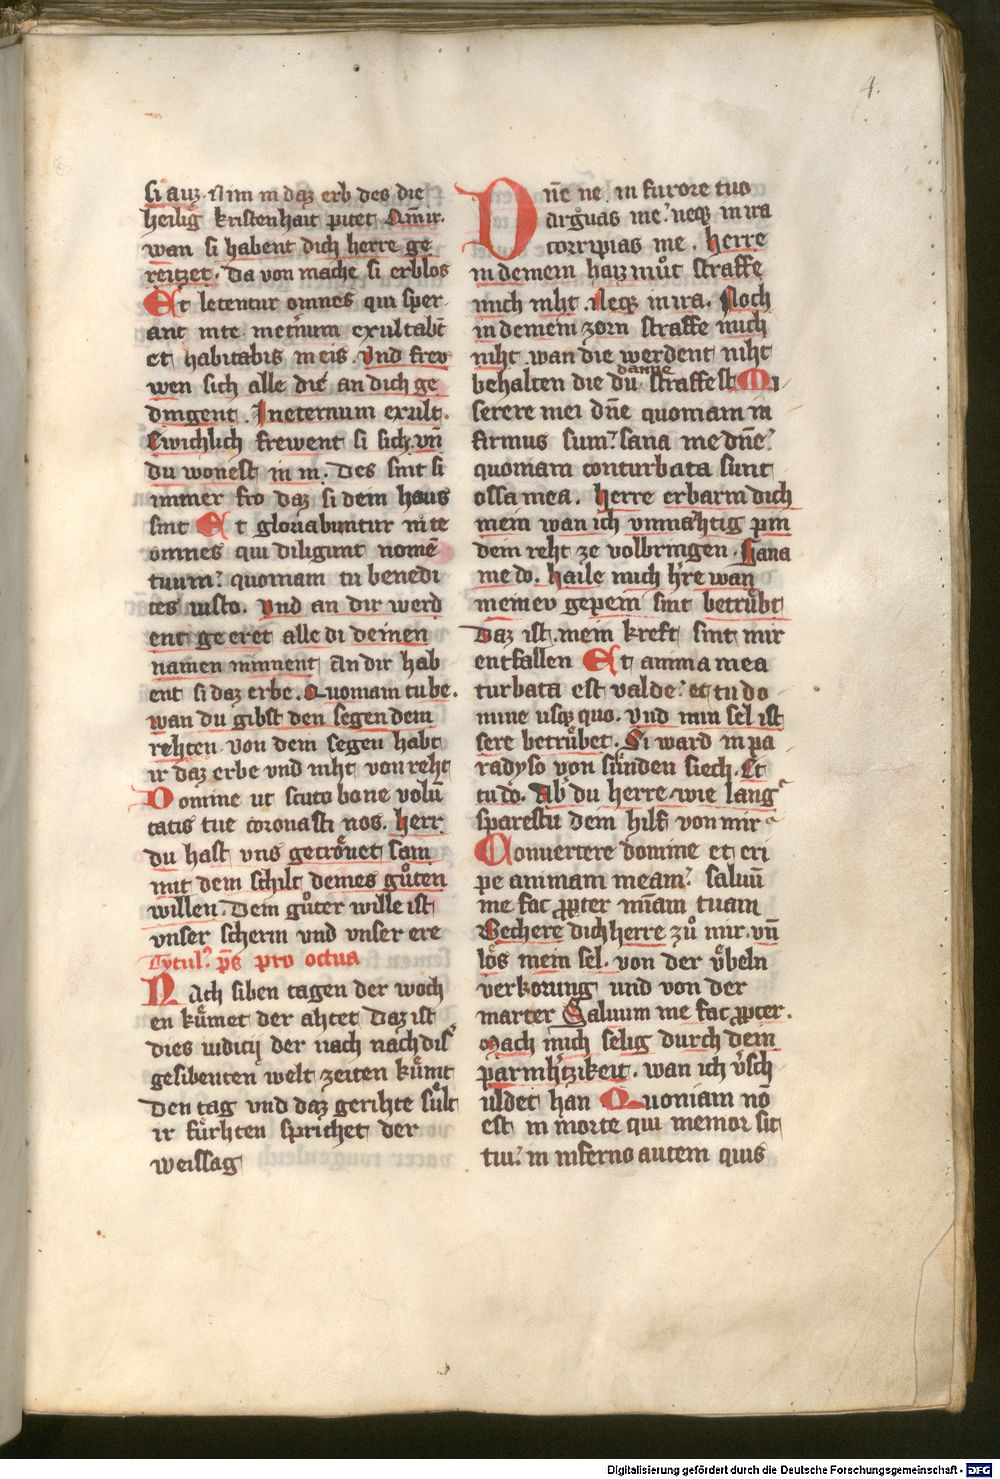 4.
si auz. Nim in daz erb des die
heilig kristenhait pitet Amīr.
wan si habent dich herre ge
reitzet. Da von mache si erblos
Et letentur omnes qui sper
ant in te. in eternum exultabūt
et habitabis in eis. Vnd frev
wen sich alle die an dich ge
dingent. In eternum exult.
Ewichlich frewent si sich vn̄
du wonest in in. Des sint si
immer fro daz si dein haus
sint Et gloriabuntur in te
omnes qui diligunt nomē
tuum. quoniam tu benedi
ces iusto. Vnd an dir werd
ent ge eret alle di deinen
namen minnent An dir hab
ent si daz erbe. Quoniam tu be.
wan du gibst den segen dem
rehten von dem segen habt
ir daz erbe vnd niht von reht
Domine ut scuto bone volū
tatis tue coronasti nos. herr
du hast vns getroͤnet sam
mit dem schilt deines guͦten
willen. Dein guͦter wille ist
vnser scherm vnd vnser ere
Tytul' ps pro octua
Nach siben tagen der woch
en kuͤmet der ahtet Daz ist
dies iudicij der nach nach dis'
gesibenten welt zeiten kuͤmt
Den tag vnd daz gerihte suͤlt
ir fuͤrhten sprichet der
weissag
Dn̄e ne in furore tuo
arguas me. neqz in ira
corripias me. herre
in deinem haizmuͦt straffe
mich niht. Neqz in ira. Noch
in deinem zorn straffe mich
niht wan die werdent niht
danne
behalten die du straffest Mi
serere mei dn̄e quoniam in
firmus sum. sana me dn̄e
quoniam conturbata sunt
ossa mea. herre erbarm dich
mein wan ich vnmahtig pin
dein reht ze volbringen. Sana
me do. haile mich h're wan
meinev gepein sint betruͤbt
Daz ist. mein kreft sint mir
entfallen Et anima mea
turbata est valde. et tu do
mine usqz quo. vnd min sel ist
sere betruͤbet. Si ward in pa
radyso von suͤnden siech. Et
tu do. Ab' du herre wie lang
sparestu dein hilf von mir
Conuertere domine et eri
pe animam meam. saluū
me fac ꝓpter mīam tuam
Bechere dich herre zuͦ mir. vn̄
loͤs mein sel. von der vͤbeln
verkorung und von der
marter Saluum me fac ꝓpter.
Mach mich selig durch dein
parmh'tzikeit. wan ich v'sch
uldet han Quoniam nō
est in morte qui memor sit
tui. in inferno autem quis
Digitalisierung gefördert durch die Deutsche Forschungsgemeinschaft - DFG